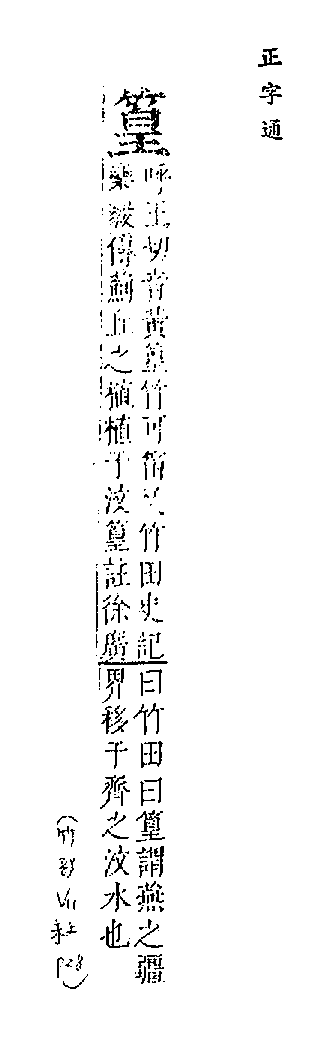 正字通
篁
呼王切音黃篁竹可笛又竹田史記
樂毅傳薊丘之植植于汶篁註徐廣
曰竹田曰篁謂燕之疆
界移于齊之汶水也
(竹部 p28)